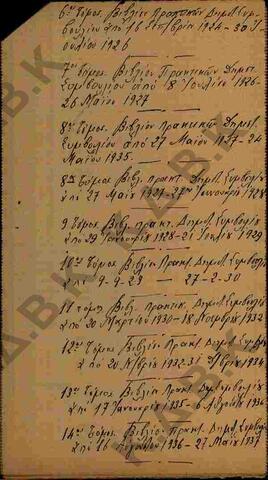 6ος Τόμος. Βιβλίον Πρακτικών Δημ. Συμ-
βουλίου από 16 Σεπτβρίου 1924 - 30 Ι-
ουλίου 1926
7ος τόμος. Βιβλίον Πρακτικών Δημοτ.
Συμβουλίου από 18 Ιουλίου 1926-
26 Μαΐου 1927
8ος τόμος. Βιβλίον Πρακτικών Δημοτ.
Συμβουλίου από 27 Μαΐου 1927-24
Μαΐου 1935 -
Τόμος Βιβλ. πρακτ. Δημοτ. Συμβουλίου
από 27 Μαΐου Ιανουαρίου 1928
9 Τόμος Βιβλ. πρακτ. Δημοτ. Συμβουλίου
από 29 Ιανουαρίου 1928-21 Ιουλίου 1929
10ος Τόμος Βιβλίον Πρακτ. Δημοτ. Συμβουλίου
από 9-9-29 — 27-2-30
11 τόμος Βιβλ. πρακτικ. Δημοτ. Συμβουλίου
από 20 Μαρτίου 1930-18 Νοεμβρίου 1932
12ος Τόμος Βιβλίον Πρακτ. Δημοτ. Συμβουλ.
από 20 Νβρίου 1932 31 1934
13ος Τόμος Βιβλίον Πρακτ. Δημ. Συμβουλίου
από 17 Ιανουαρίου 1935 - 6 1936
14ος Τόμος. Βιβλίον Πρακτ. Δημοτ. Συμβουλ.
από 16 Αυγούστου 1936 - 27 Μαΐου 1937
Δ.Β.Κ